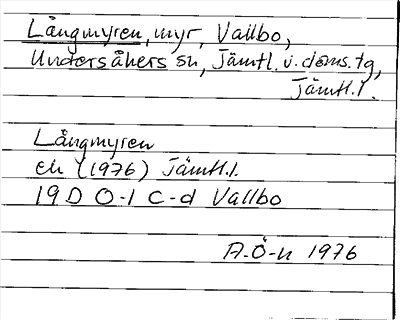 Långmyren, myr, Vallbo,
Undersåkers sn, Jämtl. v. doms. tg,
Jämtl.l.
Långmyren
ek (1976) Jämtl.l.
19 D 0-1 c-d Vallbo
A-Ö-n 1976